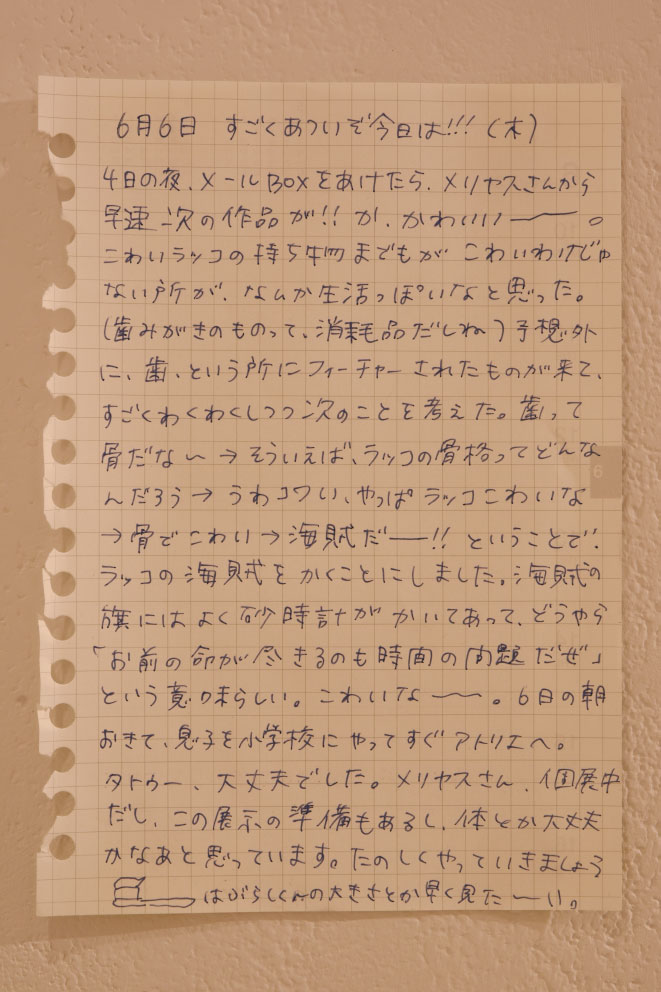 6月6日 すごくあついぞ今日は!!!(木)
4日の夜、メールBOXをあけたら、メリヤスさんから
早速次の作品が!!か、かわいい――。
こわいラッコの持ち物までもが こわいわけじゃ
ない所が、なんか生活っぽいなと思った。
(歯みがきのものって、消耗品だしね)予想外
に、歯、という所にフィーチャーされたものが来て、
すごくわくわくしつつ次のことを考えた。歯って
骨だな〜→そういえば、ラッコの骨格ってどんな
んだろう→うわコワい、やっぱラッコこわいな
→骨でこわい→海賊だ――!!ということで、
ラッコの海賊をかくことにしました。海賊の
旗にはよく砂時計がかいてあって、どうやら
「お前の命が尽きるのも時間の問題だぜ」
という意味らしい。こわいな〜〜。6日の朝
おきて、息子を小学校にやってすぐアトリエへ。
タトゥー、大丈夫でした。メリヤスさん、個展中
だし、この展示の準備もあるし、体とか大丈夫
かなあと思っています。たのしくやっていきましょう
はぶらしくんの大きさとか早く見た〜い。